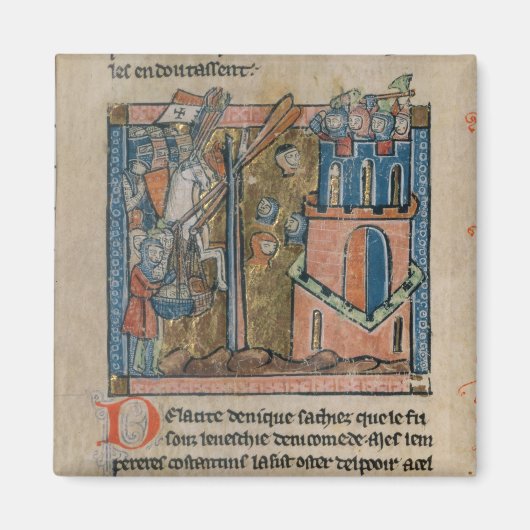 les en doutassent
De la cite de nique sachiez que le fu
soiz leveschie de nicomede. Mes lem
pereres costantins la fist oster del pooir a cel